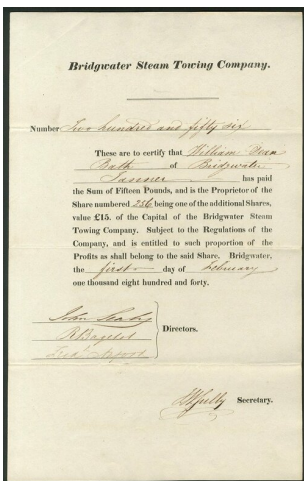 Bridgwater Steam Towing Company.
Number Two hundred and fifty six
These are to certify that William Dean
Bath of Bridgwater
Tanner has paid
the Sum of Fifteen Pounds, and is the Proprietor of the
Share numbered 256 being one of the additional Shares,
value £15. of the Capital of the Bridgwater Steam
Towing Company. Subject to the Regulations of the
Company, and is entitled to such proportion of the
Profits as shall belong to the said Share. Bridgwater,
the first day of February
one thousand eight hundred and forty.
John
R Bagehot
Directors.
Secretary.